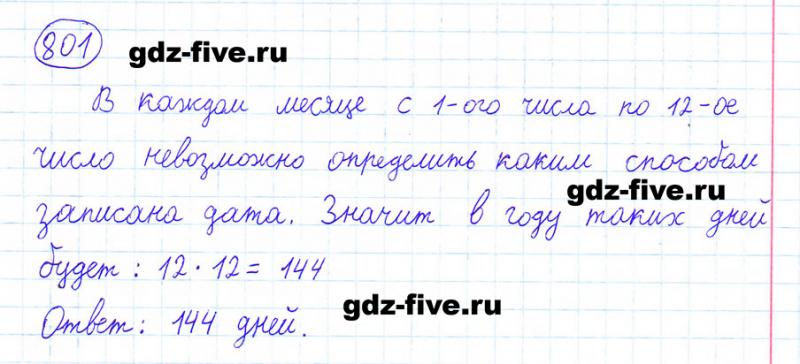 801
gdz-five.ru
В каждом месяце с 1-ого числа по 12-ое
число невозможно определить каким способом
gdz-five.ru
записана дата. Значит в году таких дней
будет: 12 · 12 = 144
gdz-five.ru
Ответ: 144 дней.